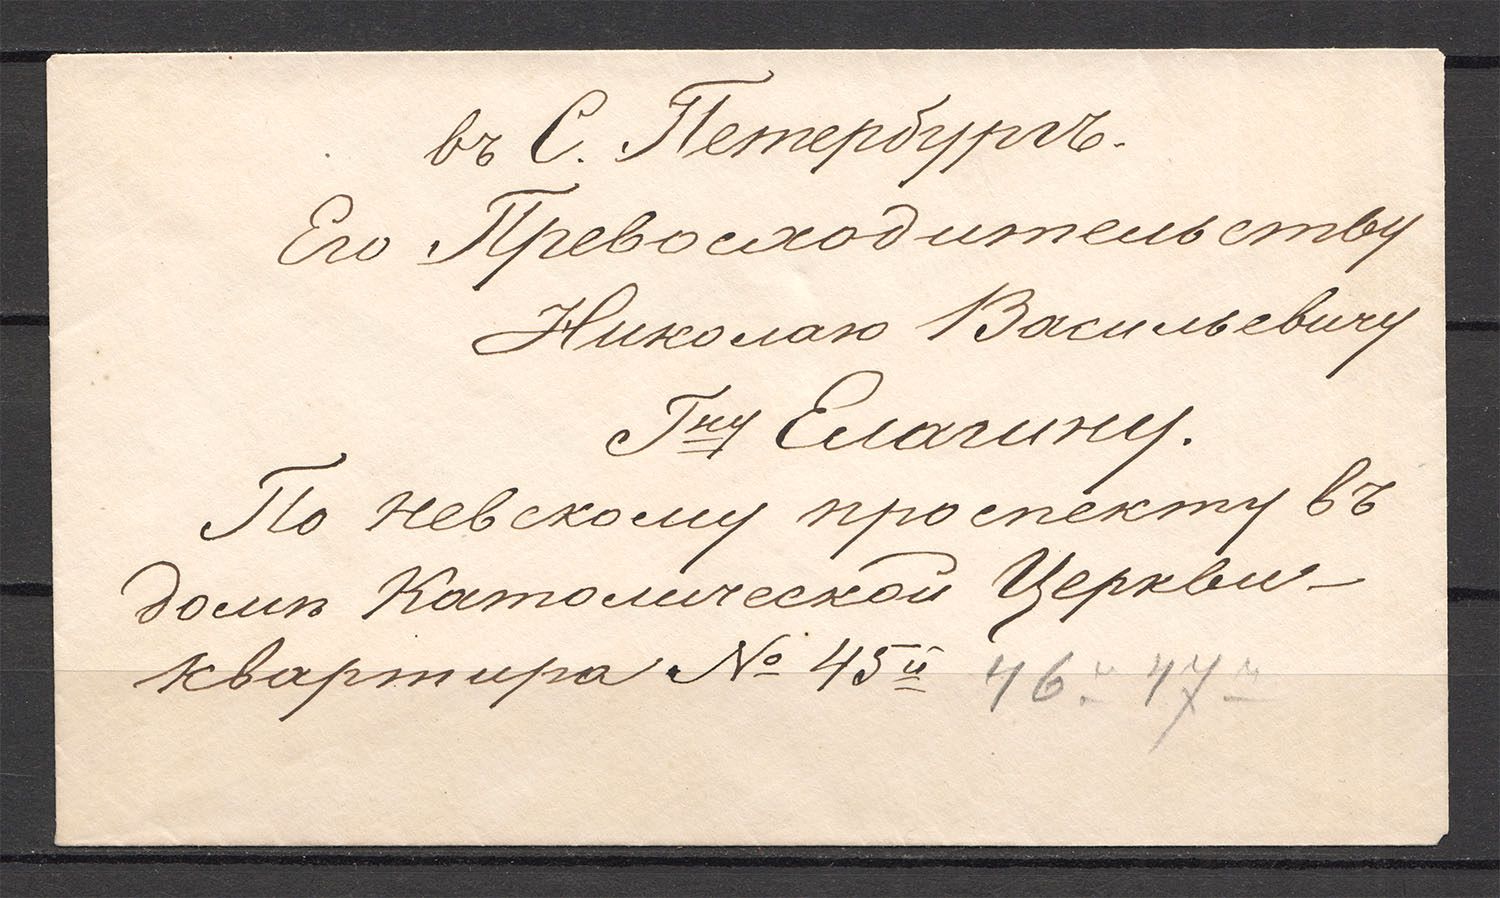 въ С. Петербургъ.
Его Превосходительству
Николаю Васильевичу
Гну Елагину.
По Невскому проспекту въ
домѣ Католической Церкви —
квартира № 45й 46й 47й